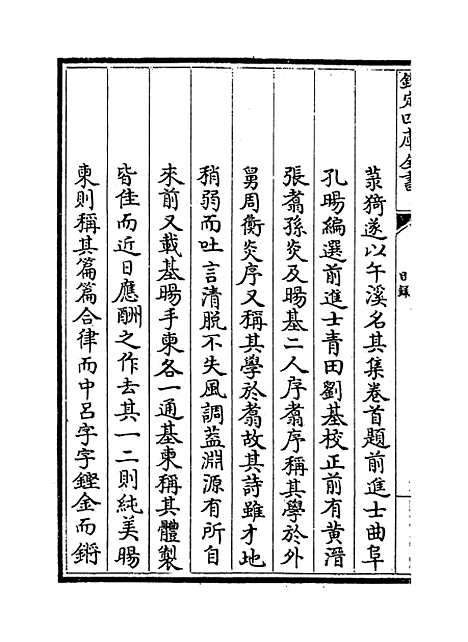 欽定四庫全書
目錄
菉猗遂以午溪名其集卷首題前進士曲阜
孔暘編選前進士青田劉基校正前有黃溍
張翥孫炎及暘基二人序翥序稱其學於外
舅周衡炎序又稱其學於翥故其詩雖才地
稍弱而吐言清脫不失風調蓋淵源有所自
來前又載基暘手柬各一通基柬稱其體製
皆佳而近日應酬之作去其一二則純美暘
柬則稱其篇篇合律而中呂字字鏗金而鏘